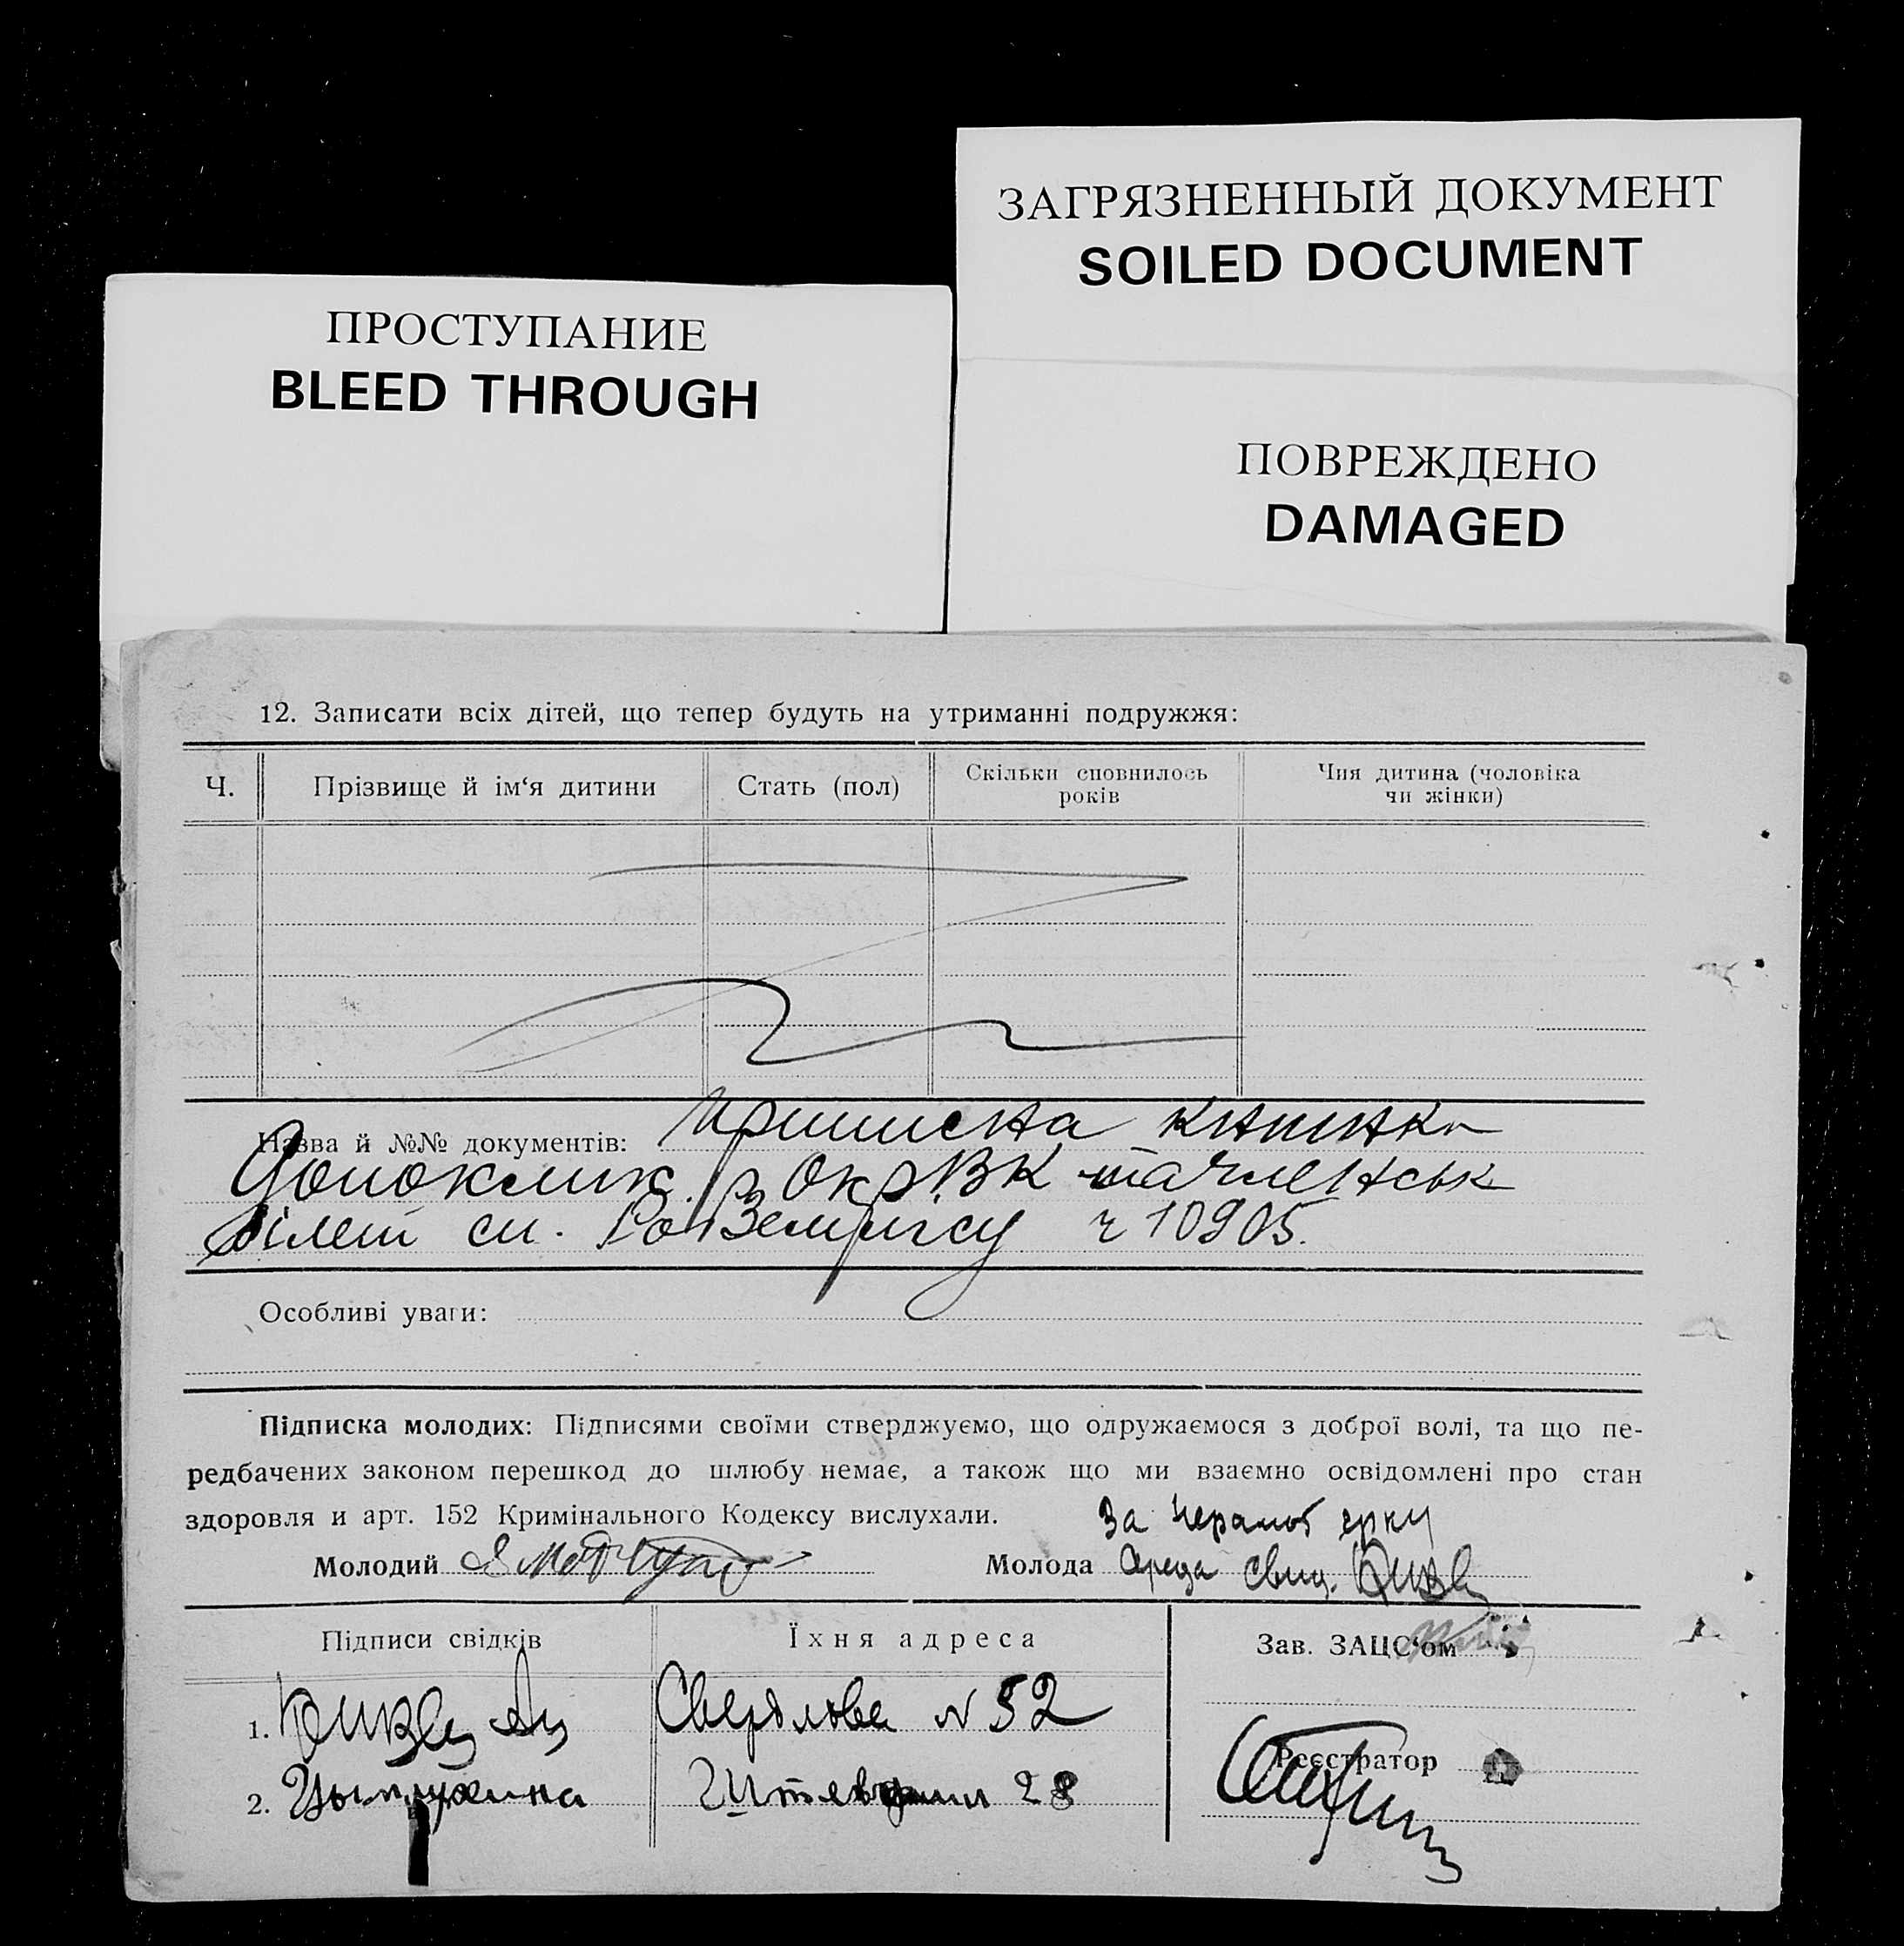 ЗАГРЯЗНЕННЫЙ ДОКУМЕНТ
SOILED DOCUMENT
ПРОСТУПАНИЕ
BLEED THROUGH
ПОВРЕЖДЕНО
DAMAGED
12. Записати всіх дітей, що тепер будуть на утриманні подружжя:
Ч. Прізвище й ім‘я дитини Стать (пол) Скільки сповнилось років Чия дитина (чоловіка чи жінки)
Назва й №№ документів: Приписна
ОкрВК членськ
білет сп. РобЗемлісу ч 10905.
Особливі уваги:
Підписка молодих: Підписями своїми стверджуємо, що одружаємося з доброї волі, та що пе-
редбачених законом перешкод до шлюбу немає, а також що ми взаємно освідомлені про стан
здоровля и арт. 152 Кримінального Кодексу вислухали.
За
Молодий Молода
Підписи свідків Їхня адреса Зав. ЗАЦС‘ом
1. Свердлова N 52
Реєстратор
2. 28